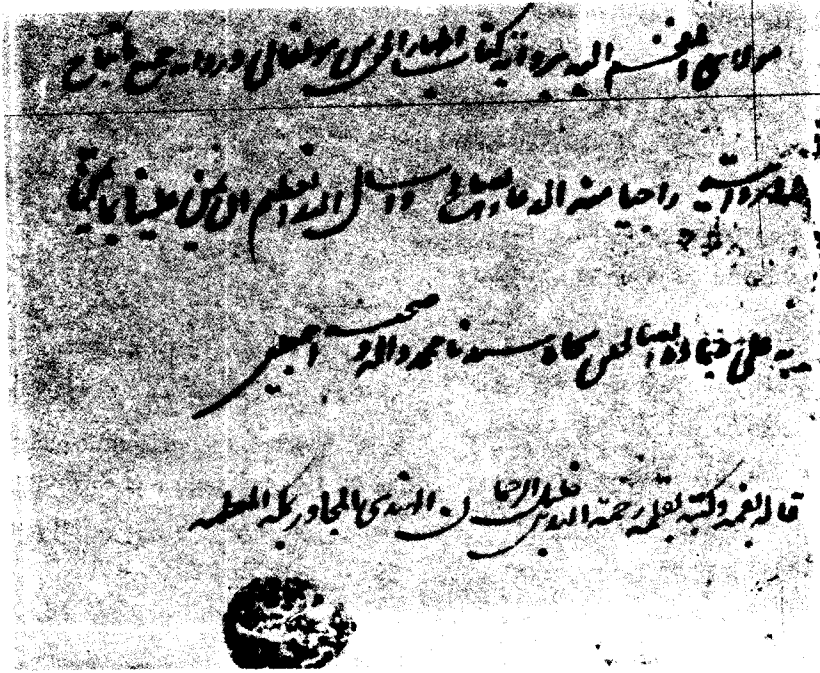 مولاي المفخم اليه بروايه كتاب اظهار الحق من مولفاتي وروايه جميع ما
وراجيا منه الدعاء الصالح واسال الله العظيم ان يمن علينا بما
به على عباده الصالحين بجاه سيدنا محمد واله وصحبه اجمعين
قاله بفمه وكتبه بقلمه رحمة الله بن خليل الرحمان الهندي المجاور بمكة المعظمه